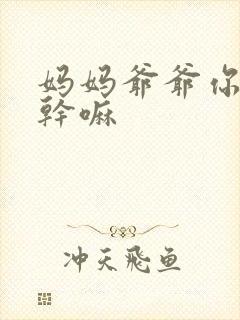 妈妈爷爷你
幹嘛
冲天飛鱼